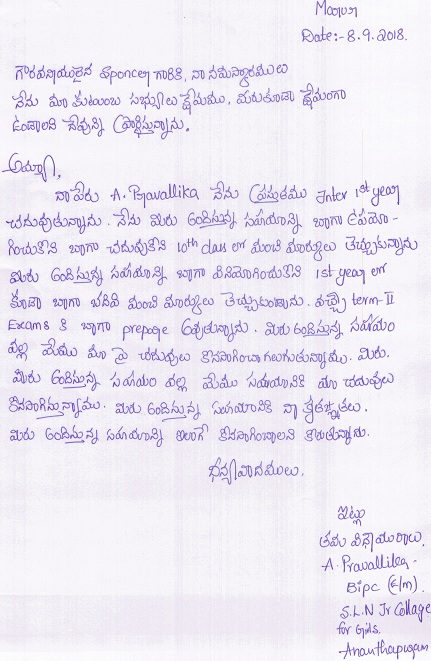 Date:- 8.9.2018.
గౌరవనీయులైన sponcer గారికి, నా నమస్కారములు
నేను మా కుటుంబ సభ్యులు క్షేమము, మీరుకూడా క్షేమంగా
ఉండాలని దేవున్ని ప్రార్థిస్తున్నాను.
అయ్యా,
నా పేరు A. Pravallika నేను ప్రస్తుతము Inter 1st year
చదువుతున్నాను. నేను మీరు అందిస్తున్న సహాయాన్ని బాగా ఉపయో-
గించుకొని బాగా చదువుకొని 10th class లో మంచి మార్కులు తెచ్చుకున్నాను
మీరు అందిస్తున్న సహాయాన్ని బాగా వినియోగించుకొని 1st year లో
కూడా బాగా చదివి మంచి మార్కులు తెచ్చుకుంటాను. వచ్చే term-II
Exams కి బాగా prepare అవుతున్నాను. మీరు అందిస్తున్న సహాయం
వల్ల మేము మా పై చదువులు కొనసాగించగలుగుతున్నాము. మీరు.
మీరు అందిస్తున్న సహాయం వల్ల మేము సమయానికి మా చదువులు
కొనసాగిస్తున్నాము. మీరు అందిస్తున్న సహాయానికి నా కృతజ్ఞతలు.
మీరు అందిస్తున్న సహాయాన్ని ఇలాగే కొనసాగించాలని కోరుతున్నాను.
ధన్యవాదములు.
ఇట్లు
తమ విధేయురాలు.
A. Pravallika.
Bipc (E/m).
S.L.N Jr Collage
for Girls.
Ananthapuram